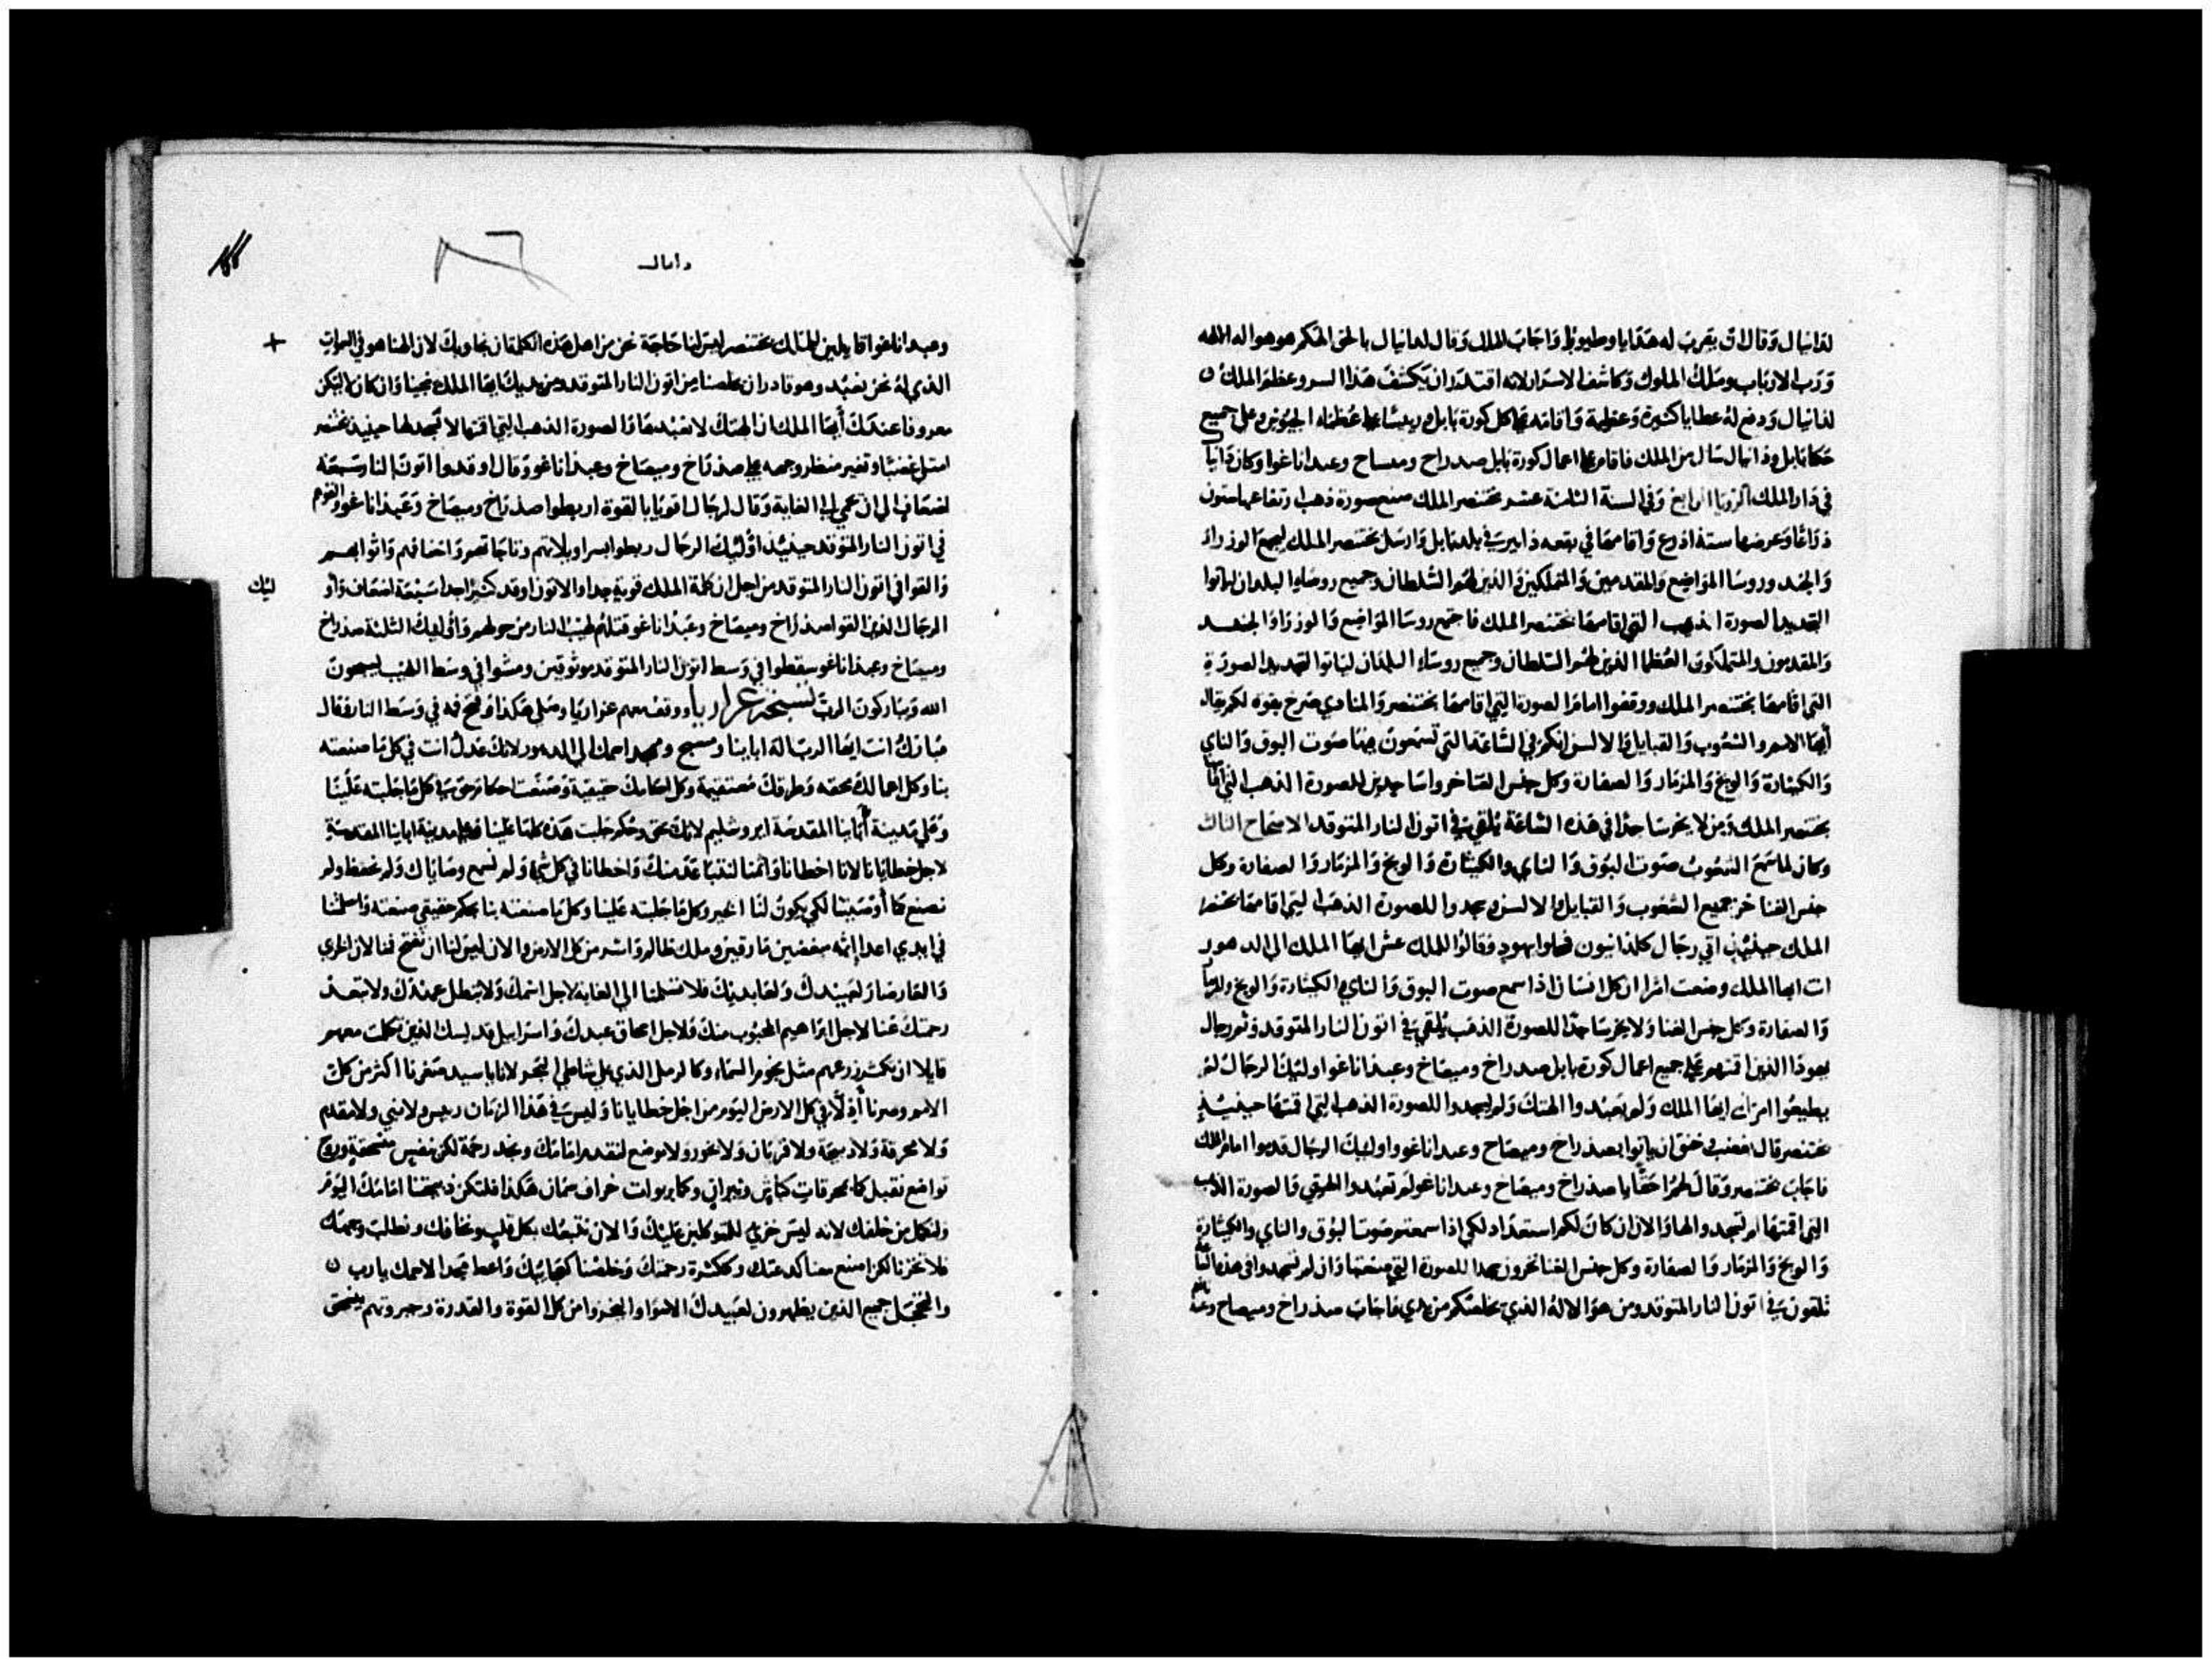 لدانيال وقال ان يقرب له هدايا وطيوبا واجاب الملك وقال لدانيال بالحق الهكم هو هو اله الالهه
ورب الارباب وملك الملوك وكاشف الاسرار لانه اقتدر ان يكشف هذا السر وعظم الملك
لدانيال ودفع له عطايا كثيرة وعظيمة واقامه على كل كورة بابل وريسا على عظماء الجيوش وعلى جميع
حكما بابل ودانيال سال من الملك فاقام على اعمال كورة بابل صدراح وميساح وعبداناغوا وكان دانيال
في دار الملك الرويا الرابع وفي السنة الثامنة عشر بختنصر الملك صنع صورة ذهب ارتفاعها ستون
ذراعا وعرضها ستة اذرع واقامها في بقعه دابير في بلد بابل وارسل بختنصر الملك ليجمع الوزراء
والجند وروسا المواضيع والمقدمين والمتملكين والذين لهم السلطان وجميع روساء البلدان لياتوا
التجديد الصورة الذهب التي اقامها بختنصر الملك فاجتمع روسا المواضيع والوزرا والجند
والمقدمون والمتملكون العظما الذين لهم السلطان وجميع روساء البلدان لياتوا لتجديد الصورة
التي اقامها بختنصر الملك ووقفوا امام الصورة التي اقامها بختنصر والمنادي صرخ بقوه لكم يقال
ايها الامم والشعوب والقبايل والالسن انكم في الساعة التي تسمعون فيها صوت البوق والناي
والكيثارة والونج والمزمار والصفارة وكل جنس الغنا خروا ساجدين للصورة الذهب التي اقامها
بختنصر الملك ومن لا يخر ساجدا في هذه الساعة يلقى في اتون النار المتوقد الاصحاح الثالث
وكان لما سمع الشعوب صوت البوق والناي والكيثارة والونج والمزمار والصفارة وكل
جنس الغنا خر جميع الشعوب والقبايل والالسن وسجدوا للصورة الذهب التي اقامها بختنصر
الملك حينيذ اتى رجال كلدانيون فمحلوا بهود وقالوا للملك عش ايها الملك الى الدهور
انت ايها الملك وضعت امرا ان كل انسان اذا سمع صوت البوق والناي الكيثارة والونج والمزمار
والصفارة وكل جنس الغنا ولا يخر ساجدا للصورة الذهب يلقى في اتون النار المتوقد وثم رجال
يهودا الذين اقمتهم على جميع اعمال كورة بابل صدراخ وميصاخ وعبداناغوا اوليك الرجال لم
يطيعوا امرك ايها الملك ولم يعبدوا الهتك ولم يسجدوا للصورة الذهب التي اقمتها حينيذ
بختنصر قال بغضب وحنق ان ياتوا بصدراخ وميصاخ وعبداناغو واوليك الرجال قدموا امام الملك
فاجاب بختنصر وقال لهم احقا يا صدراخ وميصاخ وعبداناغو لم تعبدوا الهتي والصورة الذهب
التي اقمتها لم تسجدوا لها والان ان كان لكم استعداد لكي اذا سمعتم صوت البوق والناي والكيثارة
والونج والمزمار والصفارة وكل جنس الغنا تخرون سجدا للصورة التي صنعتها وان لم تسجدوا في هذه الساعة
تلقون في اتون النار المتوقد ومن هو الاله الذي يخلصكم من يدي فاجاب صدراخ وميصاخ
دانيال
وعبداناغوا قايلين للملك بختنصر ليس لنا حاجة نحن من اجل هذه الكلمة ان نجاوبك لان الهنا هو في السموات
الذي له نحن نعبد وهو قادر ان يخلصنا من اتون النار المتوقد ومن يديك ايها الملك نجينا وان كان لا ليكن
معروفا عندك ايها الملك ان الهتك لا نعبدها والصورة الذهب التي اقمتها لا نسجد لها حينيذ بختنصر
امتلى غضبا وتغير منظر وجهه على صدراخ وميصاخ وعبداناغو وقال اوقدوا اتون النار سبعة
اضعاف الى ان يحمى الى الغاية وقال لرجال اقويا بالقوة اربطوا صدراخ وميصاخ وعبداناغو والقوهم
في اتون النار المتوقد حينيذ اوليك الرجال ربطوا بسراويلاتهم وتاجاتهم واخفافهم واثوابهم
والقوا في اتون النار المتوقد من اجل ان كلمة الملك قوية جدا والاتون اوقد كثيرا جدا سبعة اضعاف واو
ليك
الرجال الذين القوا صدراخ وميصاخ وعبداناغو قتلهم لهيب النار من حولهم واوليك الثلثة صدراخ
وميصاخ وعبداناغو سقطوا في وسط اتون النار المتوقد موثوقين ومشوا في وسط اللهيب يسبحون
الله ويباركون الرب تسبحة عزاريا ووقف معهم عزاريا وصلى هكذا وفتح فمه في وسط النار فقال
مبارك انت ايها الرب اله اباينا ومسبح وممجد اسمك الى الدهور لانك عدل انت في كل ما صنعته
بنا وكل اعمالك محقه وطرقك مستقيمة وكل احكامك حقيقية وصنعت احكام حق في كل ما جلبته علينا
وعلى مدينة اباينا المقدسة ايروشليم لانك بحق وحكم جلبت هذه كلها علينا وعلى مدينة اباينا المقدسة
لاجل خطايانا لانا اخطانا واثمنا لنتباعد منك واخطانا في كل شي ولم نسمع وصاياك ولم نحفظ ولم
نصنع كما اوصيتنا لكي يكون لنا الخير وكل ما جلبته علينا وكل ما صنعته بنا بحكم حقيقي صنعته واسلمتنا
في ايدي اعدا اثمه مبغضين مارقين وملك ظالم واشر من كل الارض والان ليس لنا ان نفتح فمنا لان الخزي
والعار صار لعبيدك ولعابديك فلا تسلمنا الى الغاية لاجل اسمك ولا تبطل عهدك ولا تبعد
رحمتك عنا لاجل ابراهيم المحبوب منك ولاجل اسحاق عبدك واسراييل قديسك الذين تكلمت معهم
قايلا ان تكثر زرعهم مثل نجوم السماء وكالرمل الذي على شاطي البحر لانا يا سيد صغرنا اكثر من كل
الامم وصرنا اذلا في كل الارض اليوم من اجل خطايانا وليس في هذا الزمان رييس ولا نبي ولا مقدم
ولا محرقة ولا ذبيحة ولا قربان ولا بخور ولا موضع لنتقدم امامك ونجد رحمة لكن بنفس منسحقة وروح
تواضع نقبل كما بمحرقات كباش وثيران وكما بربوات خراف سمان هكذا فلتكن ذبيحتنا امامك اليوم
ولتكمل من خلفك لانه ليس خزي للمتوكلين عليك والان نتبعك بكل قلب ونخافك ونطلب وجهك
فلا تخزنا لكن اصنع معنا كدعتك وككثرة رحمتك وخلصنا كعجايبك واعط مجدا لاسمك يا رب
والخجل جميع الذين يظهرون لعبيدك الاسوا والخزوا من كل القوة والقدرة وجبروتهم ينسحق